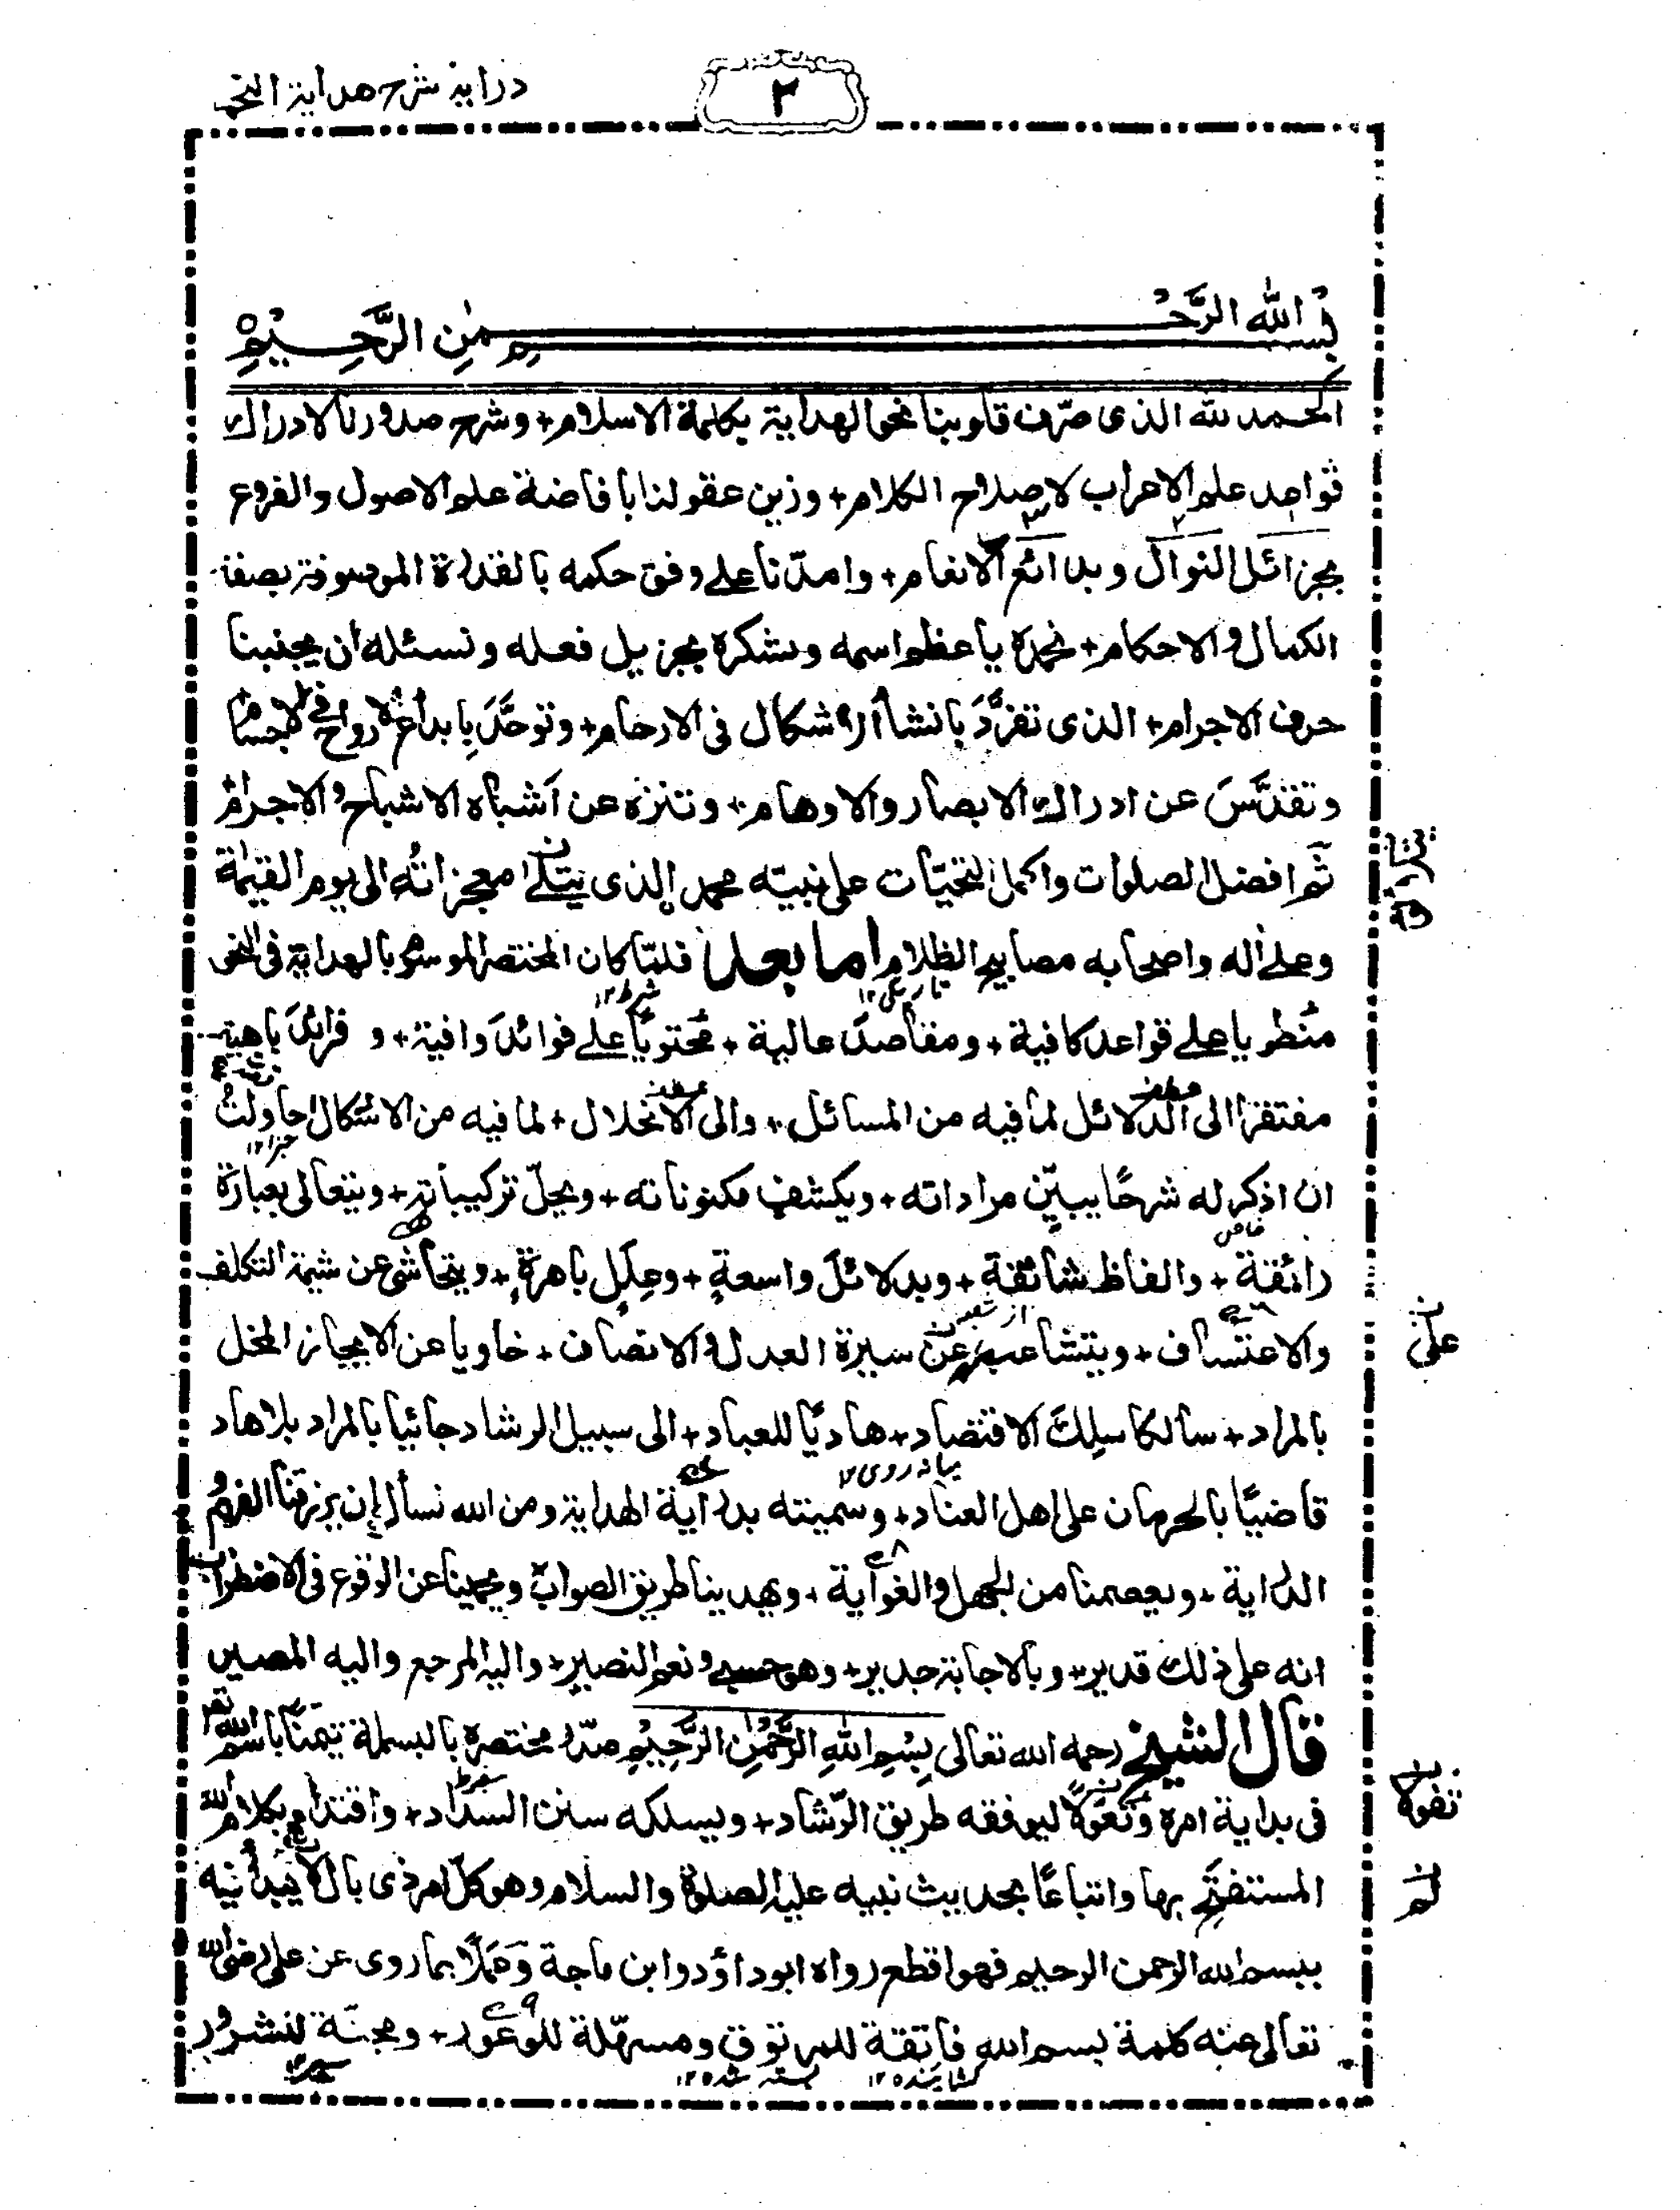 دراية شرح هداية النحو
٢
بسم الله الرحمن الرحيم
الحمد لله الذى صرّف قلوبنا نحو الهداية بكلمة الاسلام+ وشرح صدورنا لادراك
قواعد علم الاعراب لاصلاح الكلام+ وزين عقولنا بافاضة علم الاصول والفروع
بجزائل النوال وبدائع الانعام+ وامدّنا على وفق حكمه بالقدرة الموصوفة بصفة
الكمال والاحكام+ نحمده باعظم اسمه ونشكره بجزيل فعله ونسئله ان يجنبنا
حرف الاجرام+ الذى تفرَّدَ بانشاء الاشكال فى الارحام+ وتوحَّدَ بابداع الارواح فى الاجسام
وتقدَّسَ عن ادراك الابصار والاوهام+ وتنزه عن اشباه الاشباح والاجرام
ثم افضل الصلوات واكمل التحيّات على نبيّه محمد الذى معجزاته الى يوم القيٰمة
وعلى اٰله واصحابه مصابيح الظلام اما بعد فلمّا كان المختصر الموسوم بالهداية فى النحو
منطويا على قواعد كافية+ ومقاصد عالية+ محتويًا على فوائد وافية+ و فرائد باهية
مفتقرا الى الدلائل لما فيه من المسائل+ والى الانحلال+ لما فيه من الاشكال حاولتُ
ان اذكر له شرحًا يبيّن مراداته+ ويكشف مكنوناته+ ويحلّ تركيباته+ ويتعالى بعبارة
رائقة+ والفاظ شائقة+ وبدلائل واسعةٍ+ وحِكَلٍ باهرةٍ+ ويتحاشى عن شيمة التكلف
والاعتساف+ عن سيرة العدل والانصاف+ خاويا عن الايجاز المخل
بالمراد+ سالكا سِلك الاقتصاد+ هاديًا للعباد+ الى سبيل الرشاد جائيا بالمراد بلا هاد
میانہ روی ١٢
قاضيًا بالحرمان على اهل العناد+ وسميته بدراية الهداية ومن الله نسأل ان يرزقنا الفهم و
الدراية+ ويعصمنا من الجهل والغواية+ ويهدينا طريق الصواب ويحمينا عن الوقوع فى الاضطراب
انه على ذلك قدير+ وبالاجابة جدير+ وهو حسبى ونعم النصير+ واليه المرجع واليه المصير
قال الشيخ رحمه الله تعالى بِسْمِ اللهِ الرَّحْمٰنِ الرَّحِيْمِ صدّر مختصره بالبسملة تيمّنًا باسم الله
فى بداية امره ليوفقه طريق الرّشاد+ ويسلكه سنن السداد+ واقتداء بكلام الله
المستفتَح بها واتباعًا بحديث نبيه عليه الصلوة والسلام وهو كلّ امر ذى بال لا يبدأ فيه
ببسم الله الرحمن الرحيم فهو اقطع رواه ابو داؤد وابن ماجة وَعَمَلًا بما روى عن على رضى الله
تعالى عنه كلمة بسم الله فاتقة للمرتوق ومسهّلة للوعور+ ومجنّة للشرور